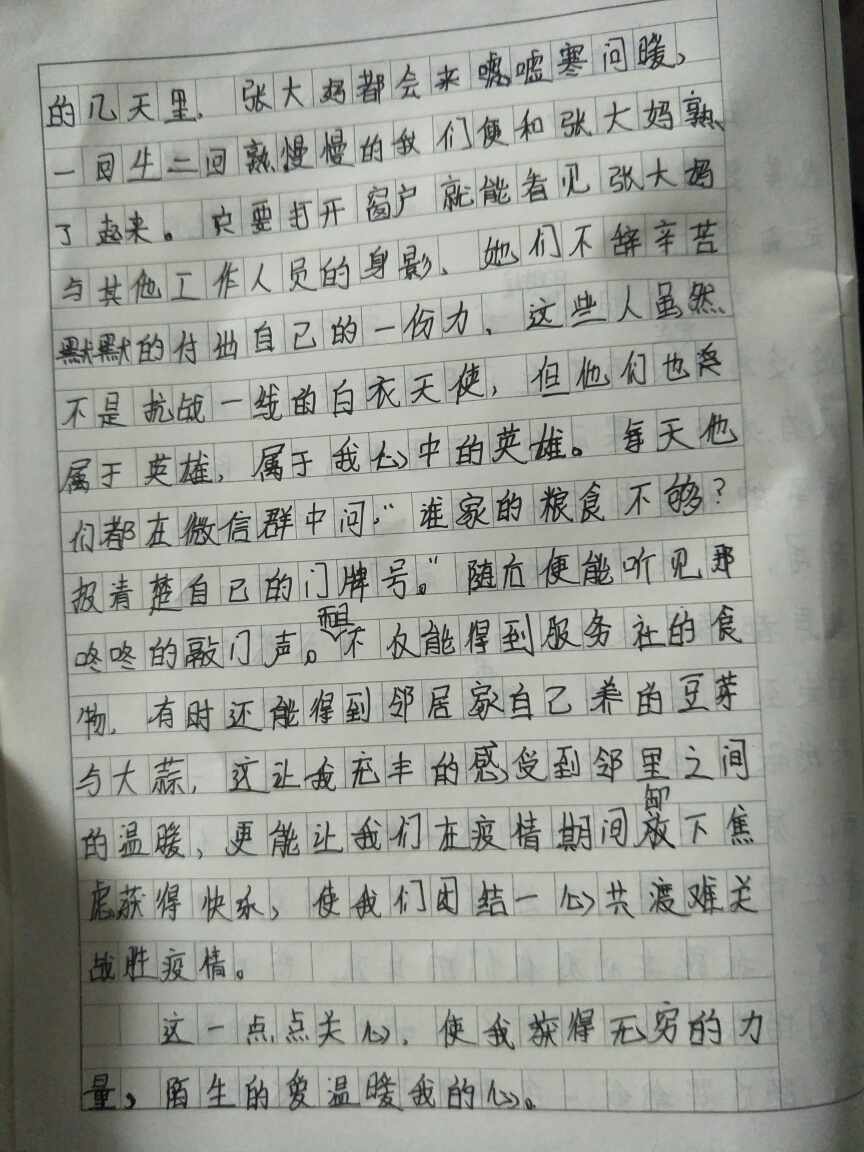 的几天里，张大妈都会来嘘嘘寒问暖，
一回生二回熟慢慢的我们便和张大妈熟
了起来。只要打开窗户就能看见张大妈
与其他工作人员的身影、她们不辞辛苦
默默的付出自己的一份力、这些人虽然
不是抗战一线的白衣天使，但他们也
属于英雄，属于我心中的英雄。每天他
们都在微信群中问，“谁家的粮食不够？
报清楚自己的门牌号。”随后便能听见那
咚咚的敲门声。不仅能得到服务社的食
物，有时还能得到邻居家自己养的豆芽
与大蒜，这让我充丰的感受到邻里之间
的温暖、更能让我们在疫情期间卸放下焦
虑获得快乐，使我们团结一心共渡难关
战胜疫情。
这一点点关心，使我获得无穷的力
量，陌生的爱温暖我的心。